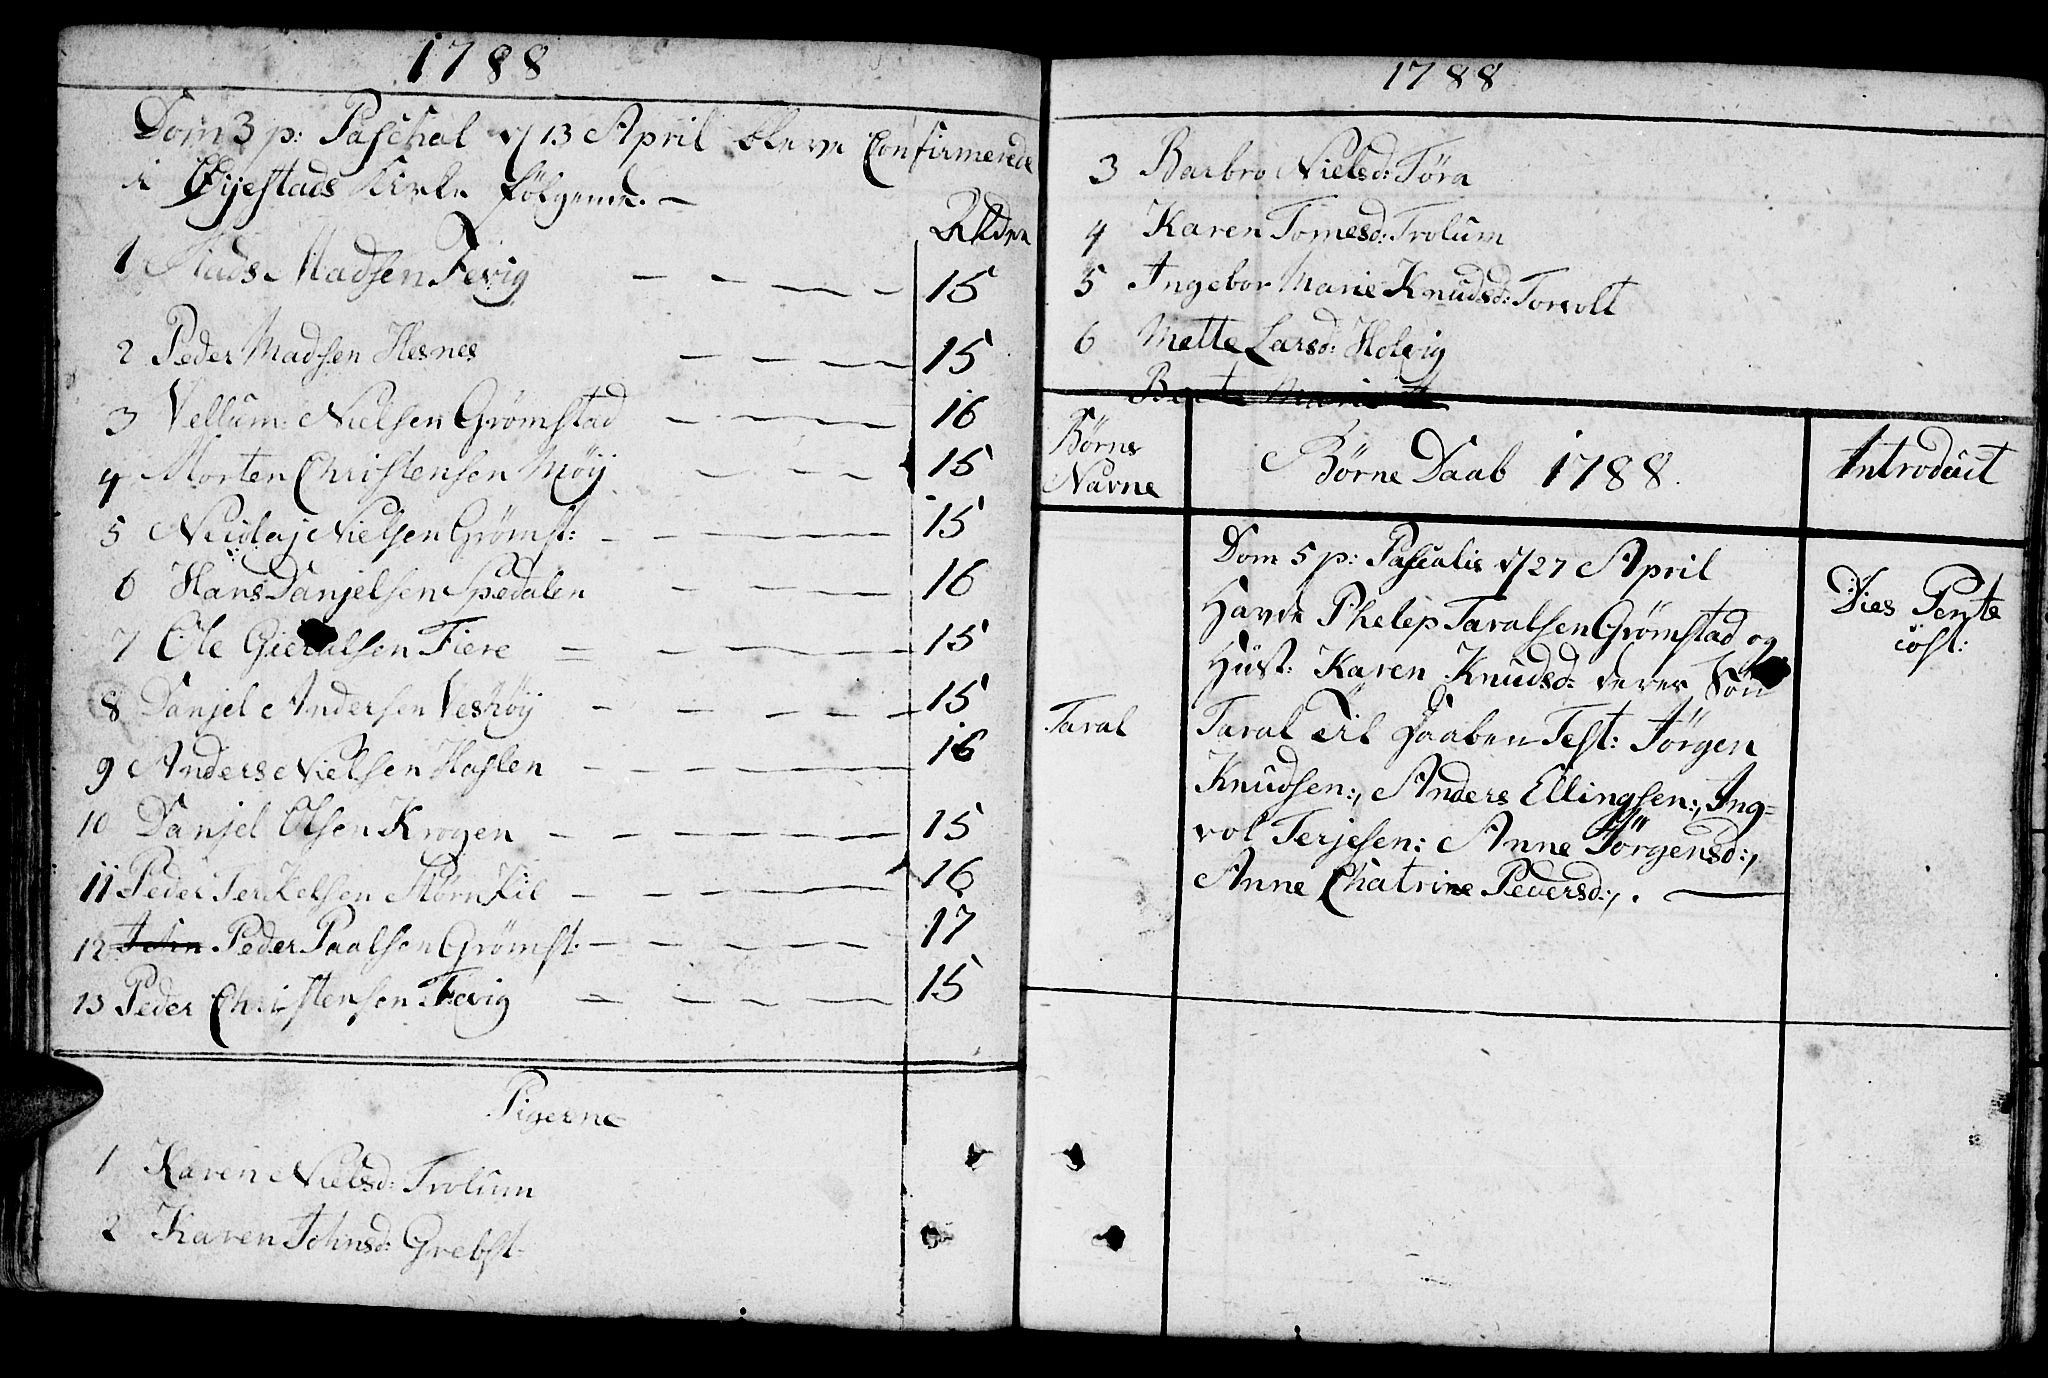 1788
Dom 3 p: Paschal d/ 13 April bleve Confirmerede
i Øijestads Kirke følgende. —
Alder
1 Mads Madsen Fevig — — — — 15
2 Peder Madsen Hesnes — — — — 15
3 Vellum: Nielsen Grømstad — — — — 16
4 Morten Christensen Møij — — — 15
5 Nicolaj Nielsen Grømst: — — — — 15
6 Hans Danjelsen Spedalen — — — — 16
7 Ole Gieralsen Fiere — — — — 15
8 Danjel Andersen Veshøij — — — — 15
9 Anders Nielsen Haslen — — — — 16
10 Danjel Olsen Krogen — — — — 15
11 Peder Terkelsen Stornkil — — — — 16
12 John Peder Paalsen Grømst: — — — — 17
13 Peder Christensen Fevig — — — — 15
Pigerne
1 Karen Nielsd: Trolum
2 Karen Johnsd: Grebst:
1788
3 Barbro Nielsd: Töra
4 Karen Tomesd: Trolum
5 Ingebor Marie Knudsd: Torvolt
6 Mette Larsd: Holvig
Berte Marie
Børns Navne
Børne Daab 1788.
Introduct
Dom 5 p: Pascalis d/27 April
Havde Phelep Taralsen Grømstad og
Hust: Karen Knudsd: deres Søn
Taral Til Daaben Test: Jørgen
Knudsen:, Anders Ellingsen:, Ing=
vol Terjesen: Anne Jörgensd:,
Anne Chatrine Pedersd:,. —
Taral
Dies Pente
cost: